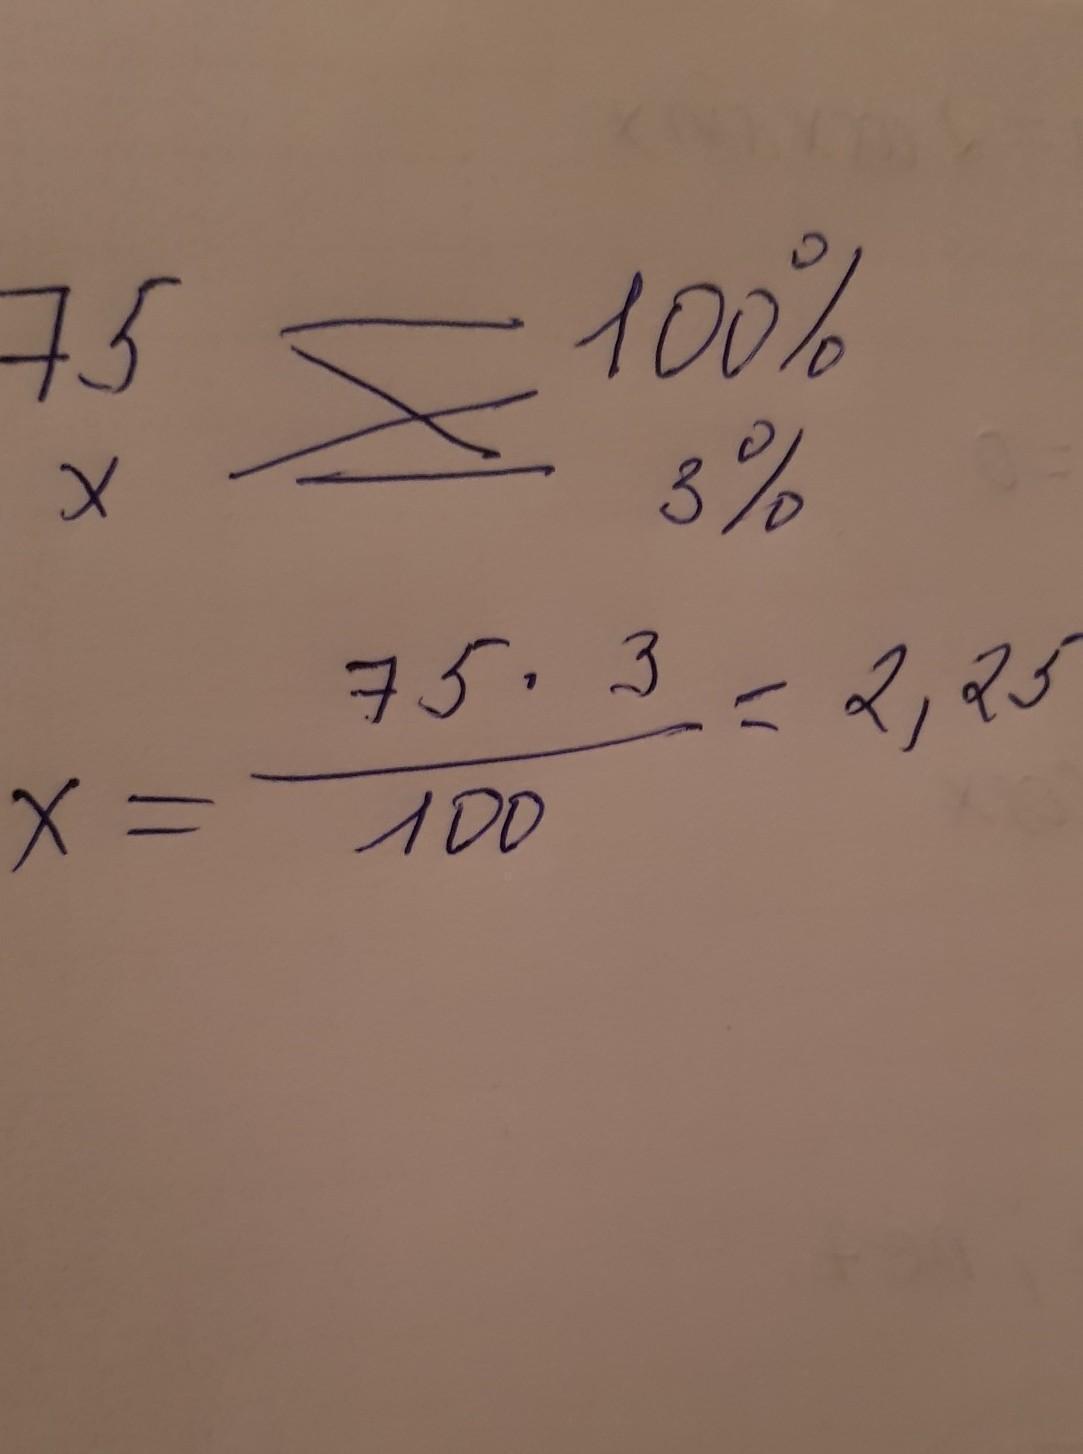 75 100%
x 3%
x = 75 · 3 / 100 = 2,25